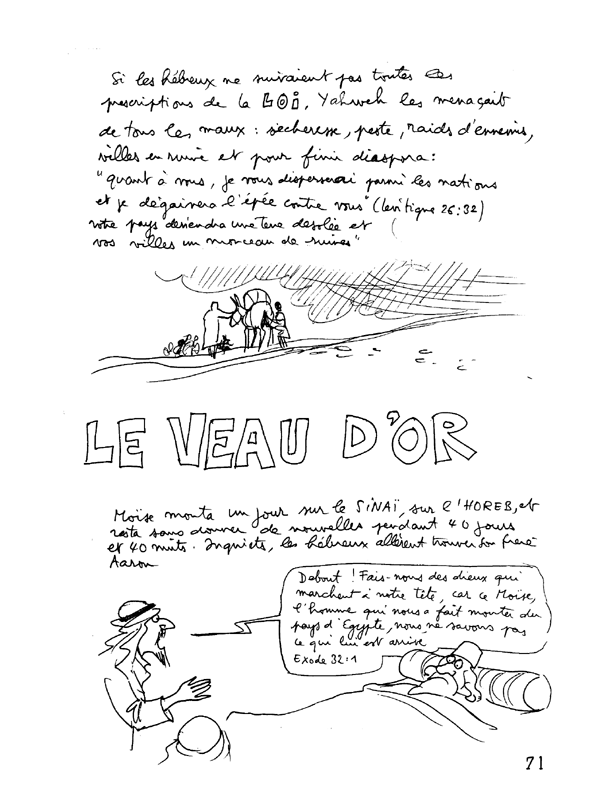 Si les hébreux ne suivaient pas toutes les
prescriptions de la LOI, Yahweh les menaçait
de tous les maux : sécheresse, peste, raids d'ennemis,
villes en ruine et pour finir diaspora :
"quant à vous, je vous disperserai parmi les nations
et je dégainerai l'épée contre vous" (Lévitique 26:32)
votre pays deviendra une terre désolée et
vos villes un morceau de ruines"
LE VEAU D'OR
Moïse monta un jour sur le SINAÏ, sur l'HOREB, et
resta sans donner de nouvelles pendant 40 jours
et 40 nuits. Inquiets, les hébreux allèrent trouver son frère
Aaron
Debout ! Fais-nous des dieux qui
marchent à notre tête, car ce Moïse,
l'homme qui nous a fait monter du
pays d'Egypte, nous ne savons pas
ce qui lui est arrivé
Exode 32:1
71